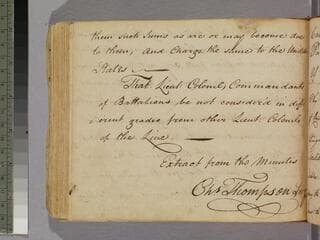 them such Sums as are or may become due
to them, and Charge the same to the United
States
That Lieut Colonels, Commandants
of Battalions be not considered in diff
erent grades from other Lieut. Colonels
of the Line.
Extract from the Minutes
Chs Thompson